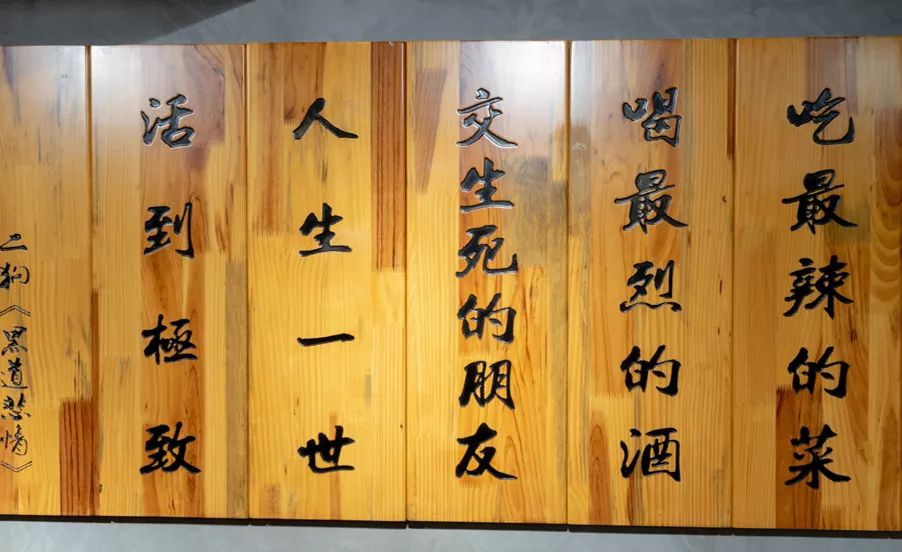 吃最辣的菜
喝最烈的酒
交生死的朋友
人生一世
活到極致
二狗《黑道悲情》